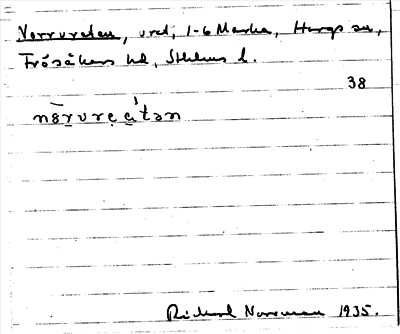 Norrvreten, vret, 1-6 Marka, Hargs sn,
Frösåkers hd, Sthlms l.
38
Rickard Norrman 1935.